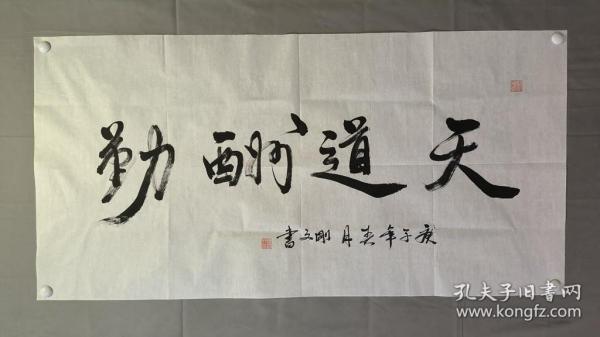 天道酬勤
庚子年春月刚文書
孔夫子旧書网
www.kongfz.com